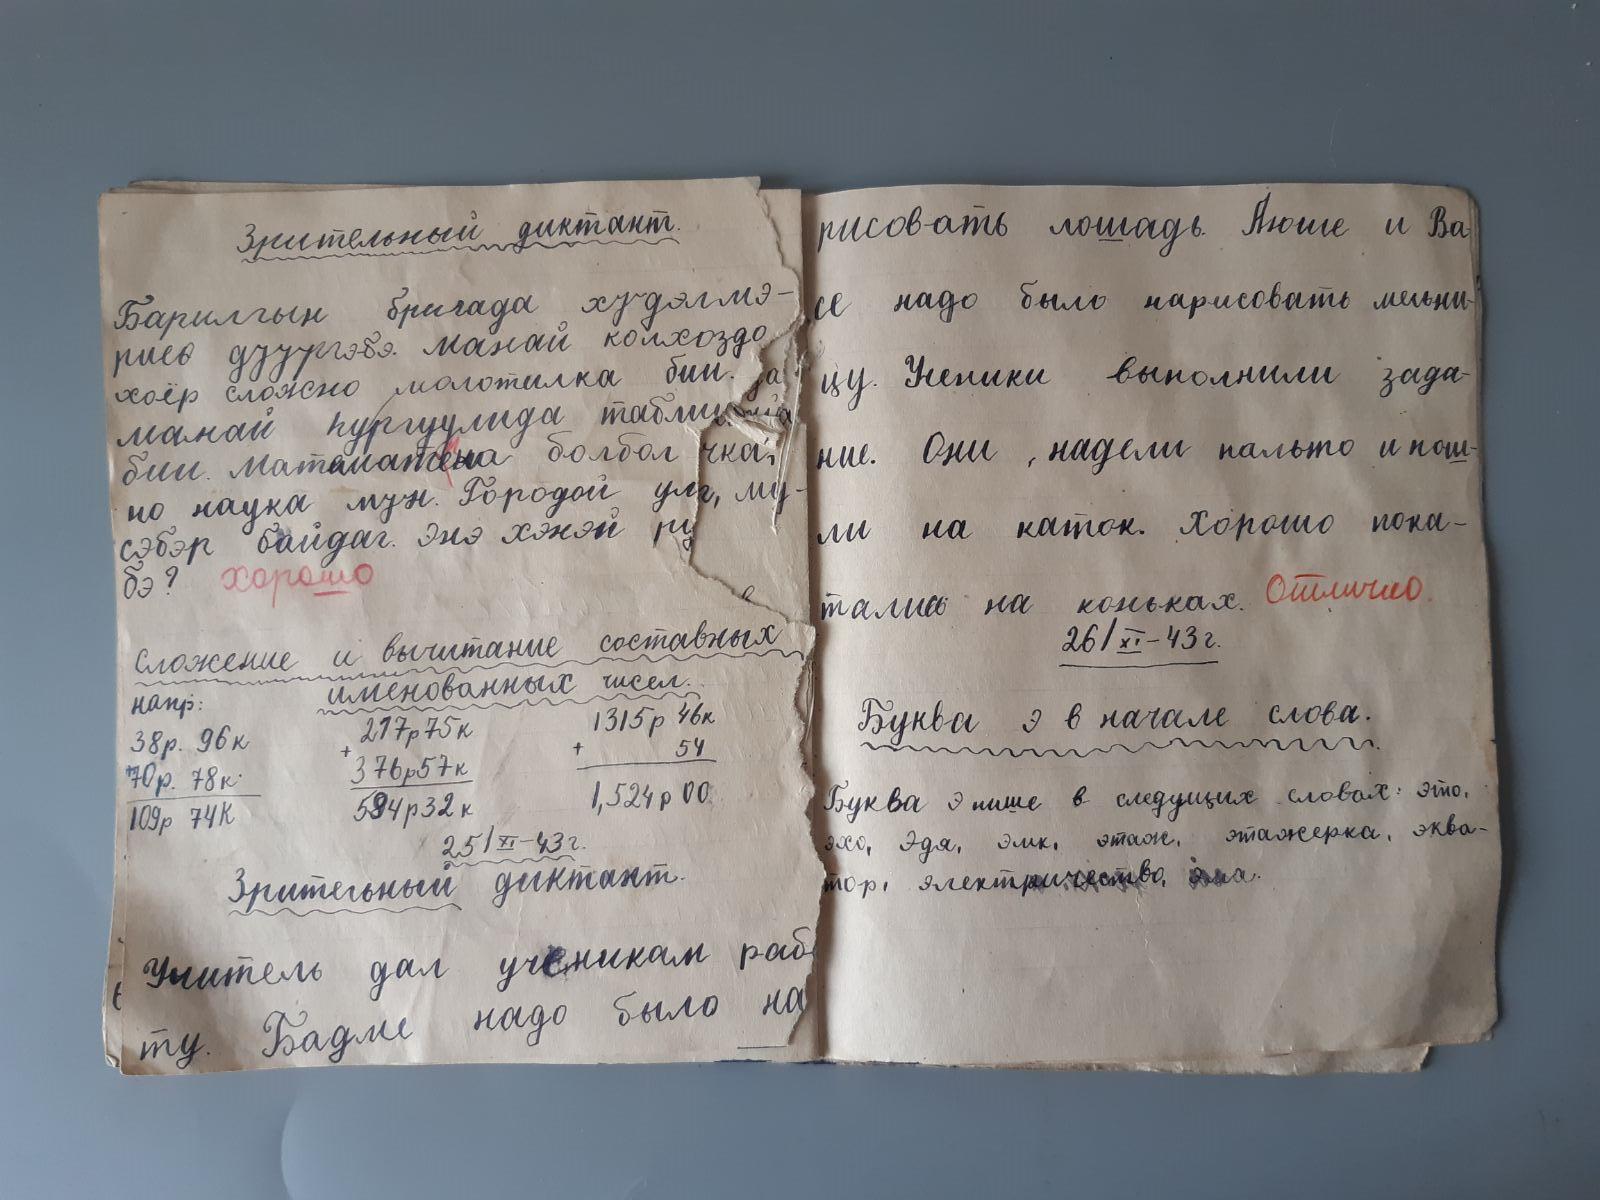 Зрительный диктант.
Барилгын бригада хүдэлмэ-
риеэ дүүргэбэ. Манай колхоздо
хоёр сложно молотилка бии.
манай һургуулида
бии. болбол
но наука мүн. Городой үлг, му-
сэбэр байдаг. Энэ хэнэй
бэ? хорошо
Сложение и вычитание составных
именованных чисел.
напр:
38р. 96к
+70р. 78к
109р 74к
217р75к
+
376р57к
594р32к
1315р 46к
+ 54
1,524р00
25/XI-43г.
Зрительный диктант.
Учитель дал ученикам раб
ту. Бадме надо было на
рисовать лошадь. Аюше и Ва-
се надо было нарисовать мельни-
цу. Ученики выполнили зада-
ние. Они , надели пальто и пош-
ли на каток. Хорошо пока-
тались на коньках. Отлично.
26/XI-43г.
Буква э в начале слова.
Буква э пише в следущих словах: это,
эхо, Эдя, эмк, этаж, этажерка, эква-
тор, электричество,